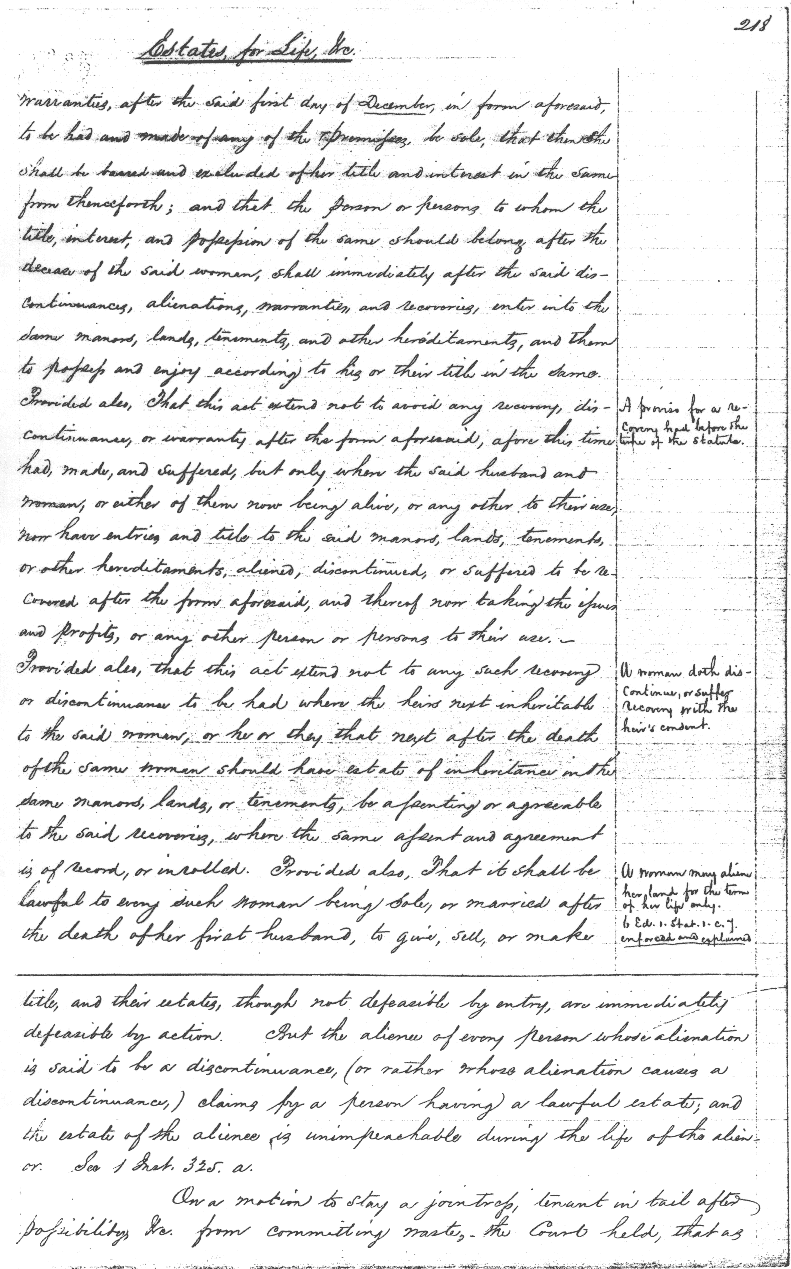 218
Estates, for Life, &c.
warranties, after the said first day of December, in form aforesaid,
to be had and made of any of the Premisses, be sole, that then she
shall be barred and excluded of her title and interest in the same
from thenceforth; and that the person or persons to whom the
title, interest, and possession of the same should belong after the
decease of the said woman, shall immediately after the said dis-
continuances, alienations, warranties, and recoveries, enter into the
same manors, lands, tenements, and other hereditaments, and them
to possess and enjoy according to his or their title in the same.
Provided also, That this act extend not to avoid any recovery, dis-
continuance, or warranty after the form aforesaid, afore this time
had, made, and suffered, but only where the said husband and
woman, or either of them now being alive, or any other to their use,
now have entries and title to the said manors, lands, tenements,
or other hereditaments, aliened, discontinued, or suffered to be re-
covered after the form aforesaid, and thereof now taking the issues
and profits, or any other person or persons to their use. –
A proviso for a re-
covery had before the
time of the Statute.
Provided also, that this act extend not to any such recovery
or discontinuance to be had where the heirs next inheritable
to the said woman, or he or they that next after the death
of the same woman should have estate of inheritance in the
same manors, lands, or tenements, be assenting or agreeable
to the said recoveries, where the same assent and agreement
is of record, or inrolled. Provided also, That it shall be
lawful to every such woman being sole, or married after
the death of her first husband, to give, sell, or make
A woman doth dis-
continue, or suffer
recovery with the
heir's consent.
A woman may alien
her land for the term
of her life only.
6 Ed. 1. Stat. 1. c. 7.
enforced and explained
title, and their estates, though not defeasible by entry, are immediately
defeasible by action. But the alienee of every person whose alienation
is said to be a discontinuance, (or rather whose alienation causes a
discontinuance,) claims by a person having a lawful estate; and
the estate of the alienee is unimpeachable during the life of the alien-
or. See 1 Inst. 325. a.
On a motion to stay a jointress, tenant in tail after
possibility, &c. from committing waste, - the Court held, that as